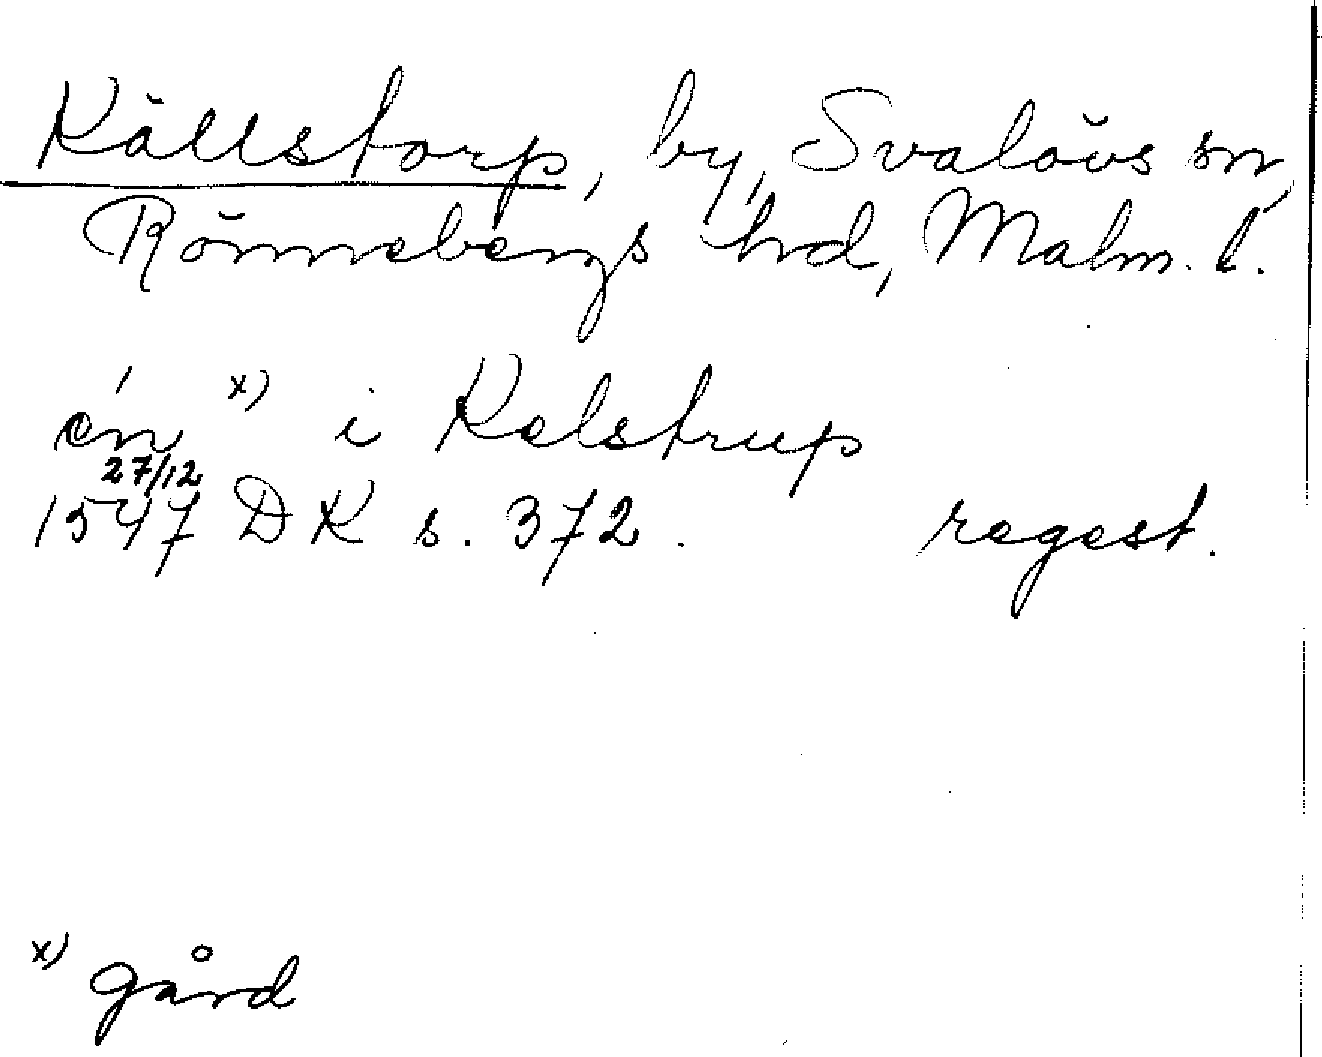 Källstorp, by, Svalövs sn,
Rönnebergs hrd, Malm. l.
én x) i Kelstrup
27/12
1547 DK s. 372. regest.
x) gård